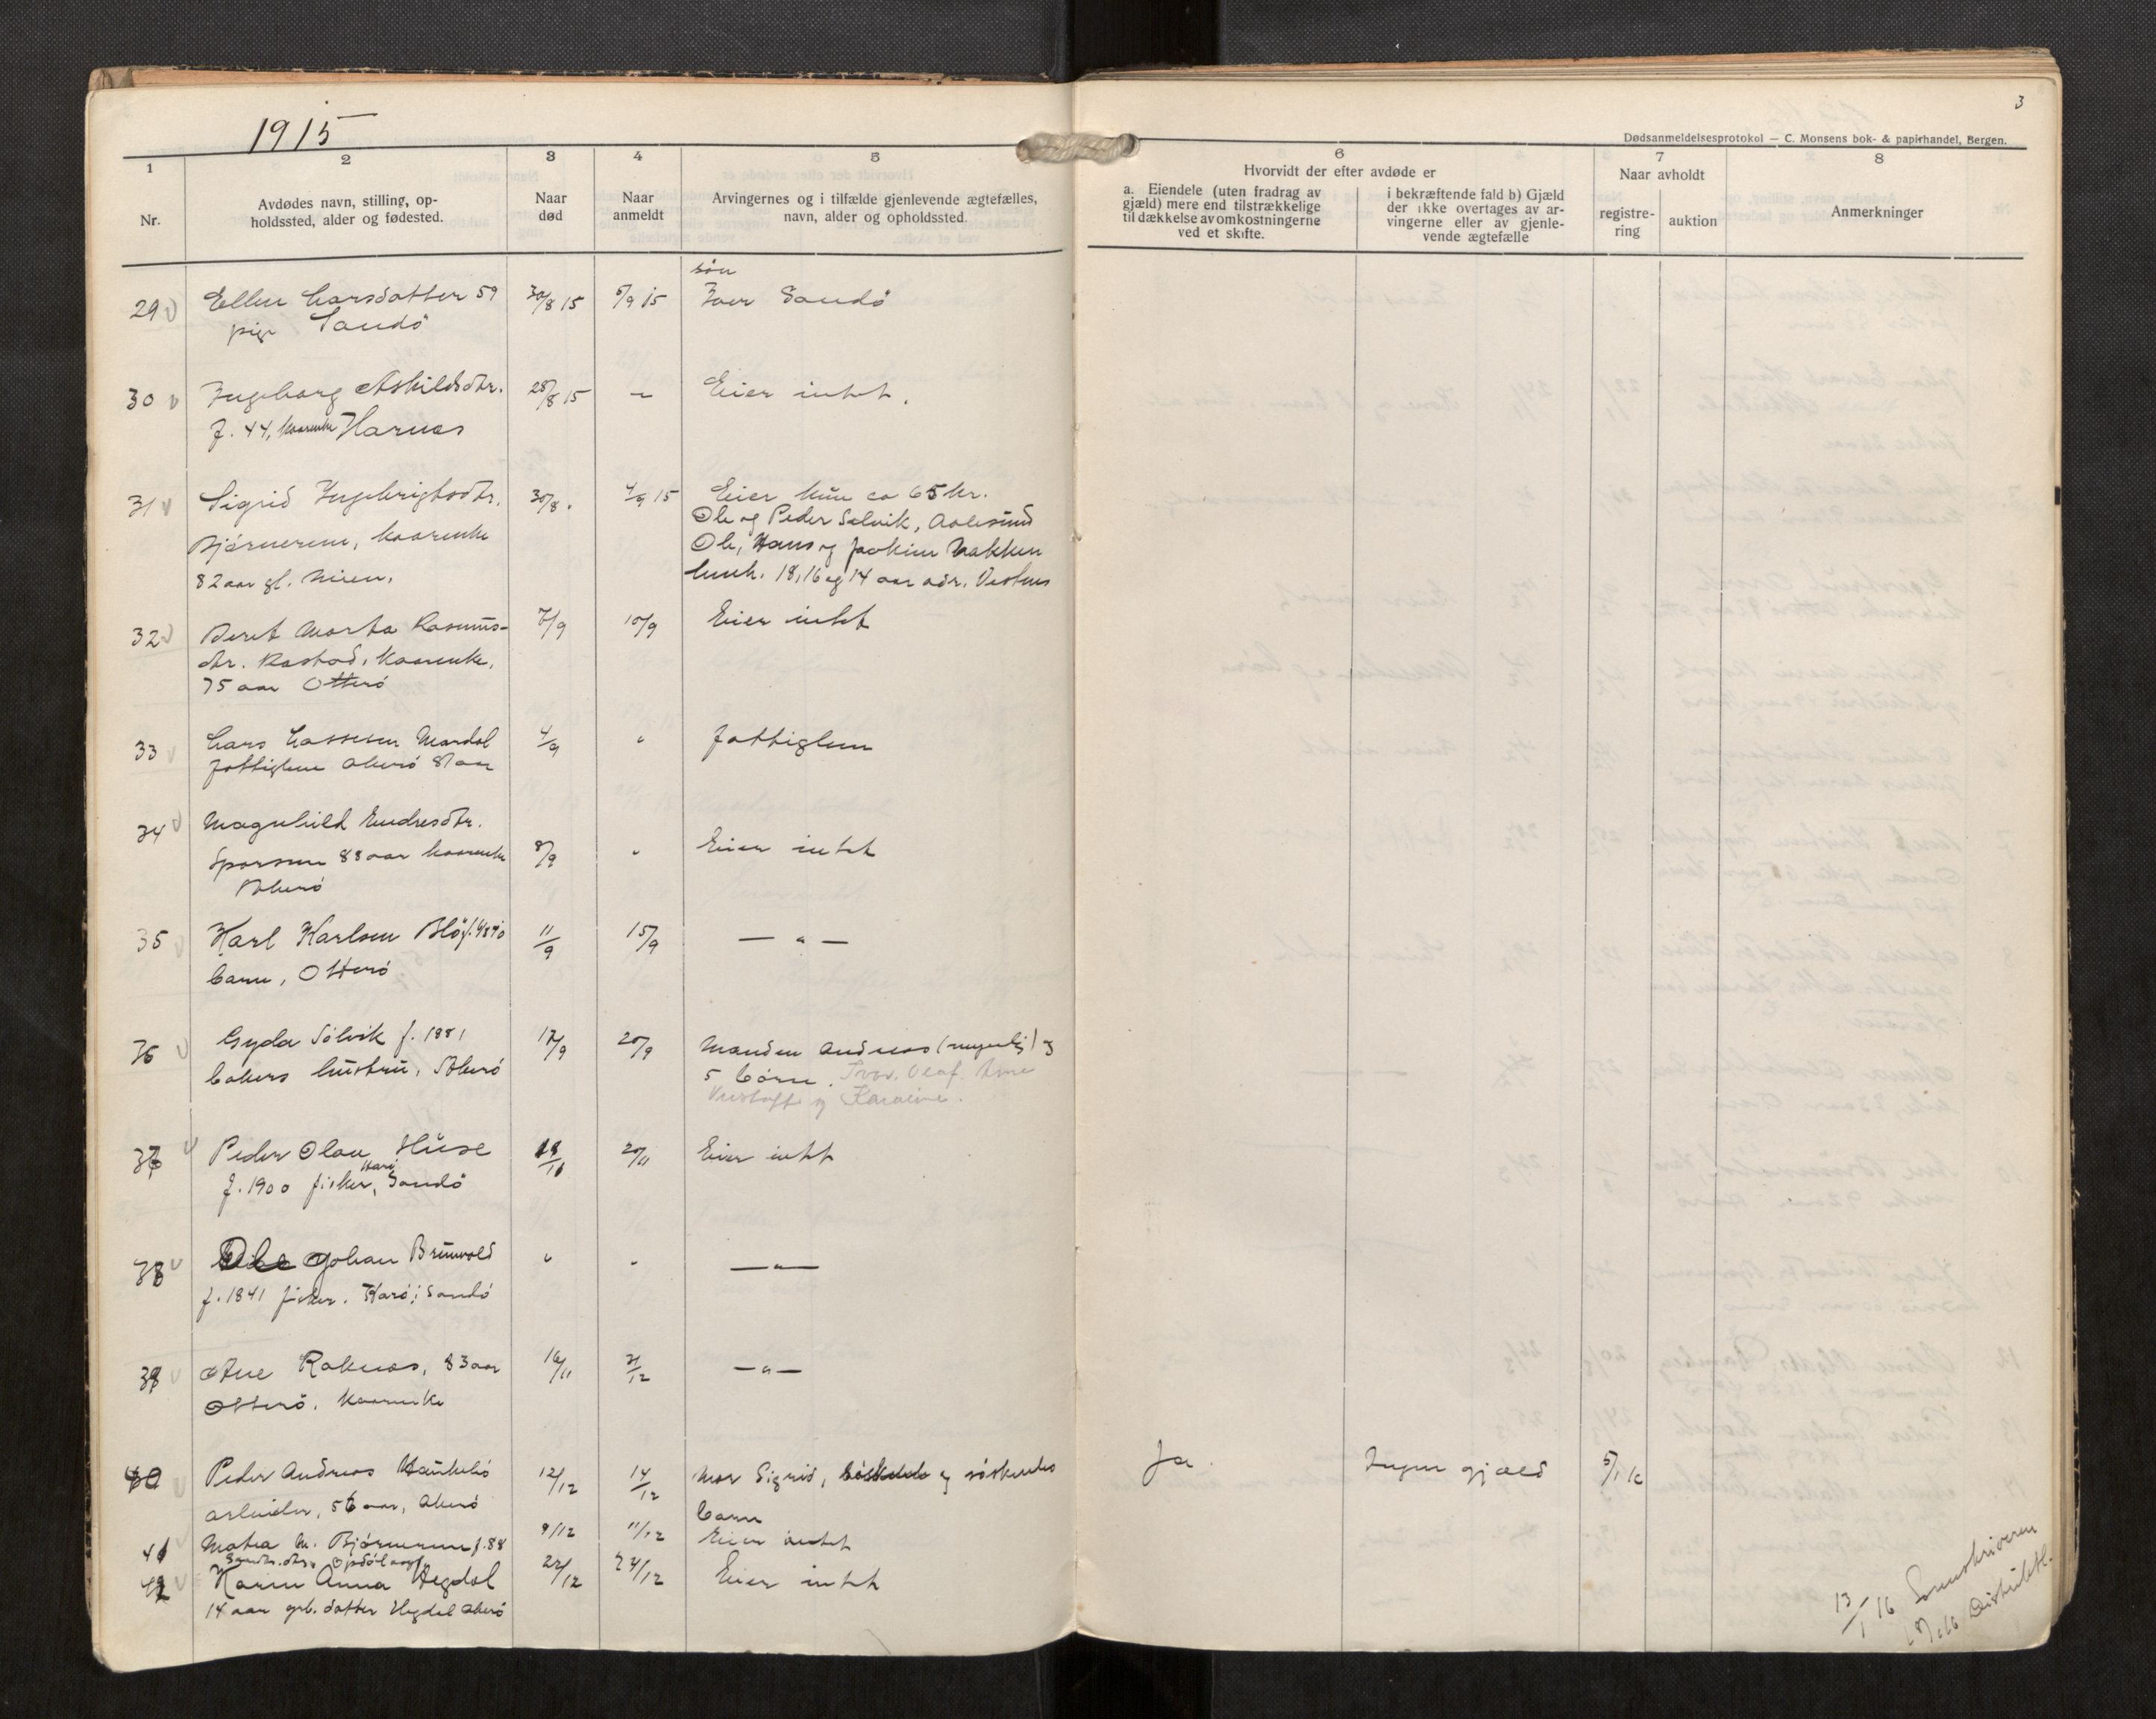 1915
3
Dødsanmeldelsesprotokol — C. Monsens bok- & papirhandel, Bergen.
1
2
3
4
5
6
7
8
Nr.
Avdødes navn, stilling, op-
holdssted, alder og fødested.
Naar
død
Naar
anmeldt
Arvingernes og i tilfælde gjenlevende ægtefælles,
navn, alder og opholdssted.
Hvorvidt der efter avdøde er
a. Eiendele (uten fradrag av
gjæld) mere end tilstrækkelige
til dækkelse av omkostningerne
ved et skifte.
i bekræftende fald b) Gjæld
der ikke overtages av ar-
vingerne eller av gjenle-
vende ægtefælle
Naar avholdt
registre-
ring
auktion
Anmerkninger
29 Ellen Larsdatter 59 30/8 15 5/9 15 søn
Iver Sandö
pige Sandö
30 Ingeborg Askildsdtr. 28/8 15 – Eier intet.
f. 44, kaarenke Harnes
31 Sigrid Ingebrigtsdtr. 30/8. 4/9 15 Eier kun ca 65 kr.
Bjørnerem, kaarenke
82 aar gl.
Ole og Peder Solvik, Aalesund
Ole, Hans og Joakim Nakken
18, 16 og 14 aar adr. Vestnes
32 Beret Marta Rasmus- 7/9 10/9 Eier intet
dtr. Rastad, kaarenke,
75 aar Otterö
33 Lars Larssen Mordal 4/9 " fattiglem
fattiglem Akerö 87 aar
34 Magnhild Endresdtr.
Sporsem 88 aar kaarenke 8/9 " Eier intet
Akerö
35 Karl Karlsen Blö 11/9 15/9 — " —
barn, Otterö
36 Gyda Sölvik f. 1881 17/9 20/9 Manden Andreas (myndig) og
bakers hustru, Akerö 5 börn. Ivar. Olaf. Arne
og Karoline.
37 Peder Olau Huse 18/11 20/11 Eier intet
f. 1900 fisker, Harö Sandö
38 Ole Johan Brunvold " " — " —
f. 1841 fisker. Harö i Sandö
39 Ane Raknes, 83 aar 16/11 2/12 — " —
Otterö. Kaarenke
40 Peder Andreas Haukebö 12/12 14/12 Mor Sigrid, og söskendes Ja. Ingen gjæld 5/1 16
arbeider, 56 aar, Akerö barn
41 Matea M. Bjørnerem f. 88 9/12 11/12 Eier intet
42 Karen Anna Hegdal 22/12 24/12 Eier intet
14 aar grb. datter Hegdal Akerö
13/1 16 Sorenskriveren